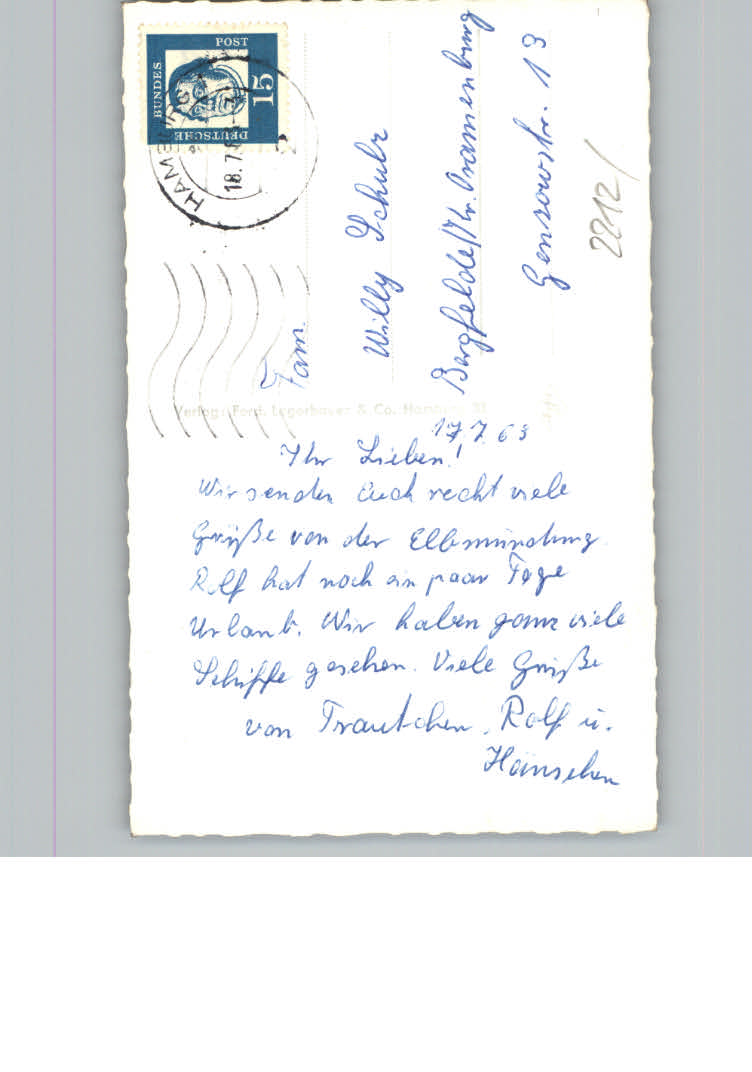 DEUTSCHE
BUNDES
POST
15
HAMBURG
18.7.6
Fam.
Willy Schulz
Bergfelde/Kr. Oranienburg
Gensowstr. 13
2212/
Verlag: Ferd. Lagerbauer & Co. Hamburg
17.7.63
Ihr Lieben!
Wir senden Euch recht viele
Grüße von der Elbemündung.
Rolf hat noch ein paar Tage
Urlaub. Wir haben ganz viele
Schiffe gesehen. Viele Grüße
von Trautchen, Rolf u.
Hänschen